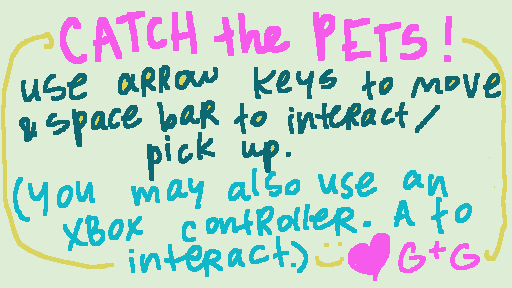 CATCH the PETS!
use arrow keys to move
& space bar to interact/
pick up.
(you may also use an
XBOX controller. A to
interact.) G+G